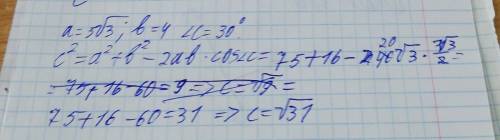 a=5√3; b=4 ∠C=30°
c²=a²+b²-2ab·cos∠c=75+16-20√3·√3/2=
=75+16-60=9=>c=√9=
75+16-60=31=>c=√31